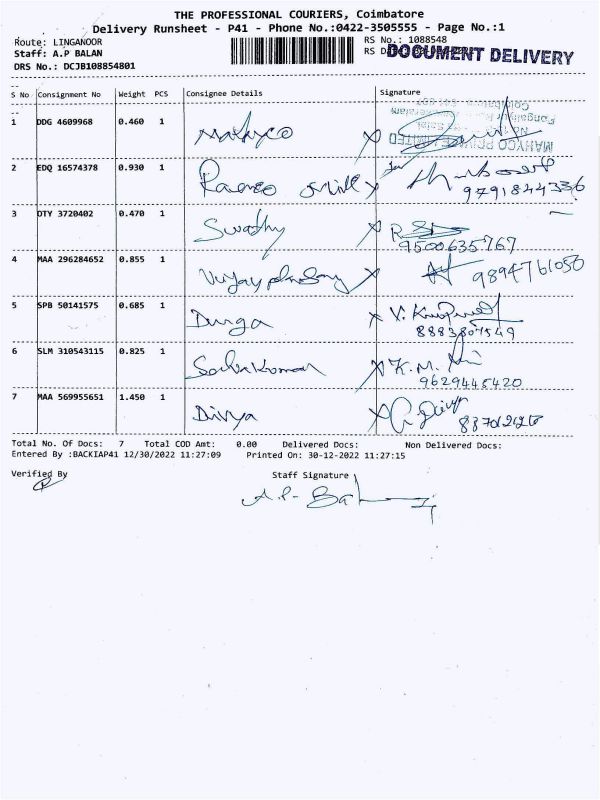 THE PROFESSIONAL COURIERS, Coimbatore
Delivery Runsheet - P41 - Phone No.:0422-3505555 - Page No.:1
Route: LINGANOOR
RS No.: 1088548
Staff: A.P BALAN
RS
DOCUMENT DELIVERY
DRS No.: DCJB108854801
S No Consignment No Weight PCS Consignee Details Signature
1 DDG 4609968 0.460 1 Mahyco X
MAHYCO PRIVATE LIMITED
2 EDQ 16574378 0.930 1 Mill X
9791844336
3 OTY 3720402 0.470 1 Swathy X
9500635767
4 MAA 296284652 0.855 1 X 9894761050
5 SPB 50141575 0.685 1 Durga X V.
8883807549
6 SLM 310543115 0.825 1 X K. M.
9629445420
7 MAA 569955651 1.450 1 Divya X
Total No. Of Docs: 7 Total COD Amt: 0.00 Delivered Docs: Non Delivered Docs:
Entered By :BACKIAP41 12/30/2022 11:27:09 Printed On: 30-12-2022 11:27:15
Verified By Staff Signature
A.P-